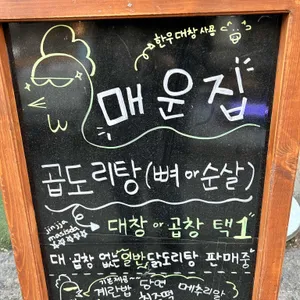 한우대창 사용
매운집
곱도리탕 (뼈 or 순살)
jinjja
masisda
대창 or 곱창 택1
대·곱창 없는 일반 닭도리탕 판매중
기본제공
계란밥 당면 메추리알